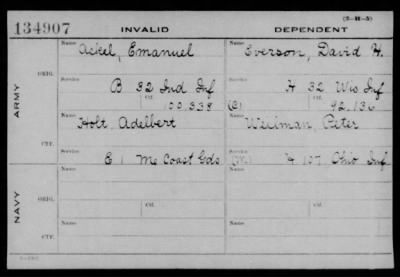 (3-M-5)
134907 INVALID DEPENDENT
Name Ackel, Emanuel Name Everson, David H.
ARMY
ORIG.
Service B 32 Ind Inf Service H 32 Wis Inf
Ctf. 100338 (C) Ctf. 92.136
Name Holt, Adelbert Name Wellman, Peter
CTF.
Service E 1 Me Coast Gds. Service H 107 Ohio Inf
NAVY
ORIG.
Name Name
Service Ctf. Service Ctf.
Name Name
CTF.
Service Service